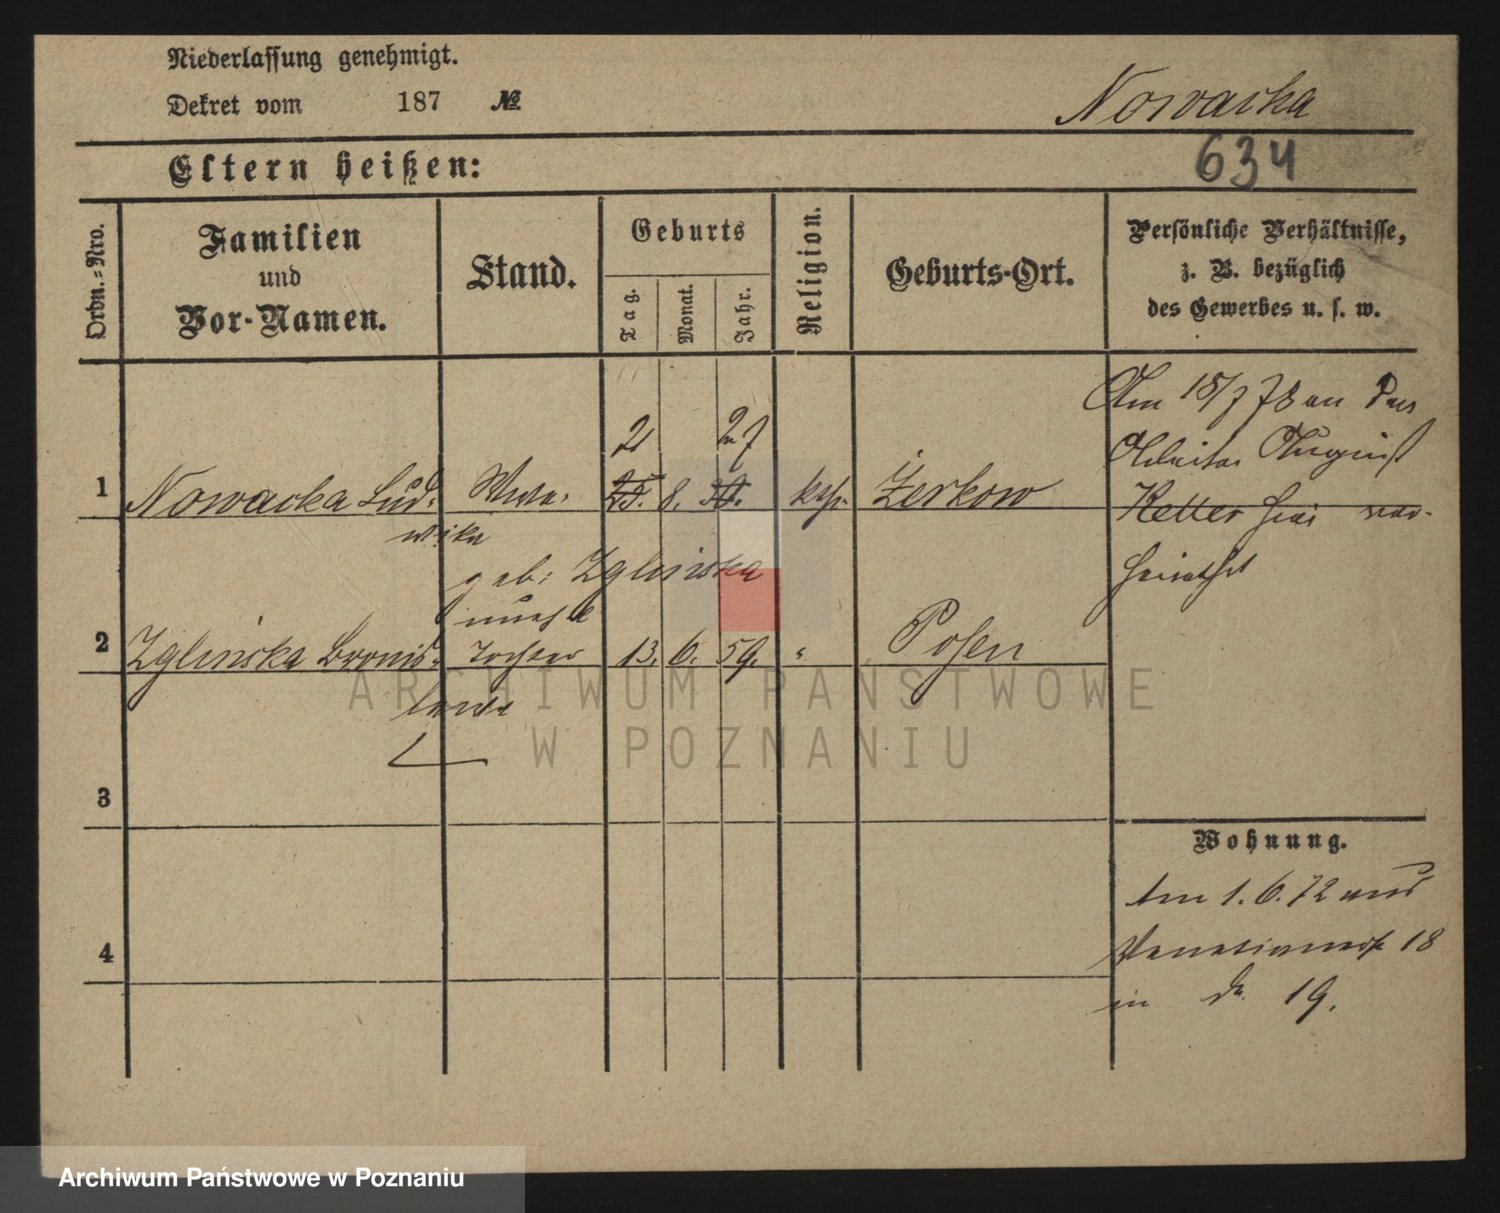 Niederlassung genehmigt.
Dekret vom 187 №
Nowacka
634
Eltern heißen:
Ordn.-Nro.
Familien
und
Vor-Namen.
Stand.
Geburts
Tag.
Monat.
Jahr.
Religion.
Geburts-Ort.
Persönliche Verhältnisse,
z. B. bezüglich
des Gewerbes u. s. w.
Am 15/7 78 an den
Arbeiter August
Ketter hier ver-
heirathet
21 27
1 Nowacka Lud- Wwe. 25. 8. 30. kath. Żerkow
wika
geb: Zglinska
unehl
2 Zglinska Bronis- Tochter 13. 6. 59. " Posen
lawa
3
4
Wohnung.
Am 1. 6. 72 aus
Venetianerstr 18
in do. 19.
ARCHIWUM PAŃSTWOWE
W POZNANIU
Archiwum Państwowe w Poznaniu